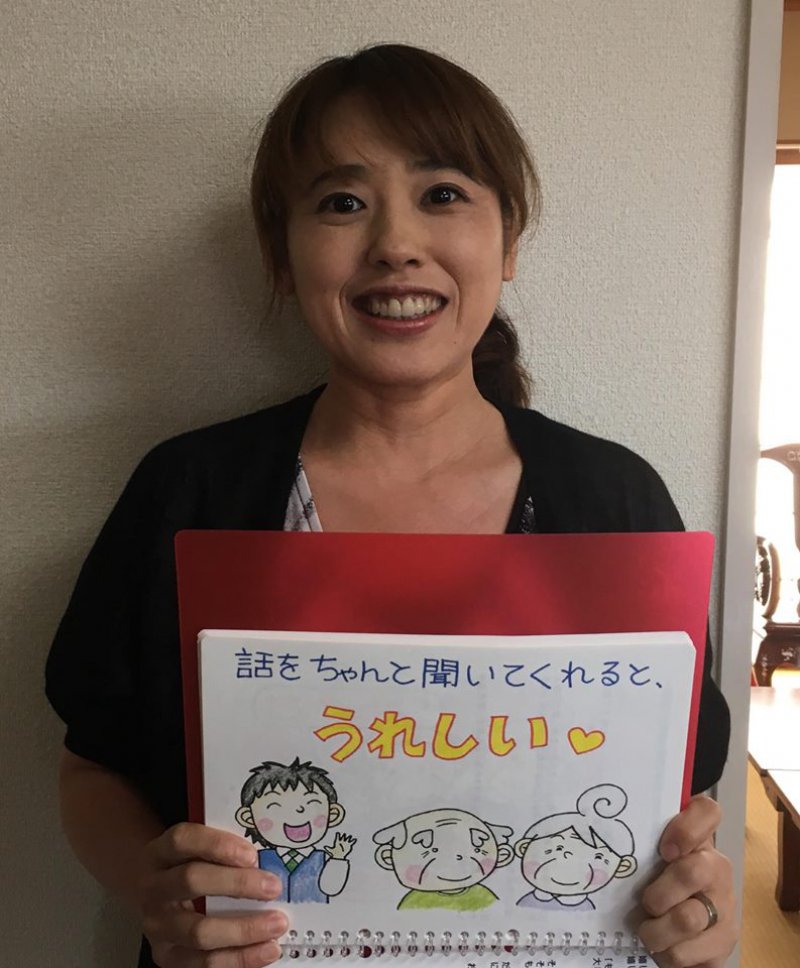 話をちゃんと聞いてくれると、
うれしい